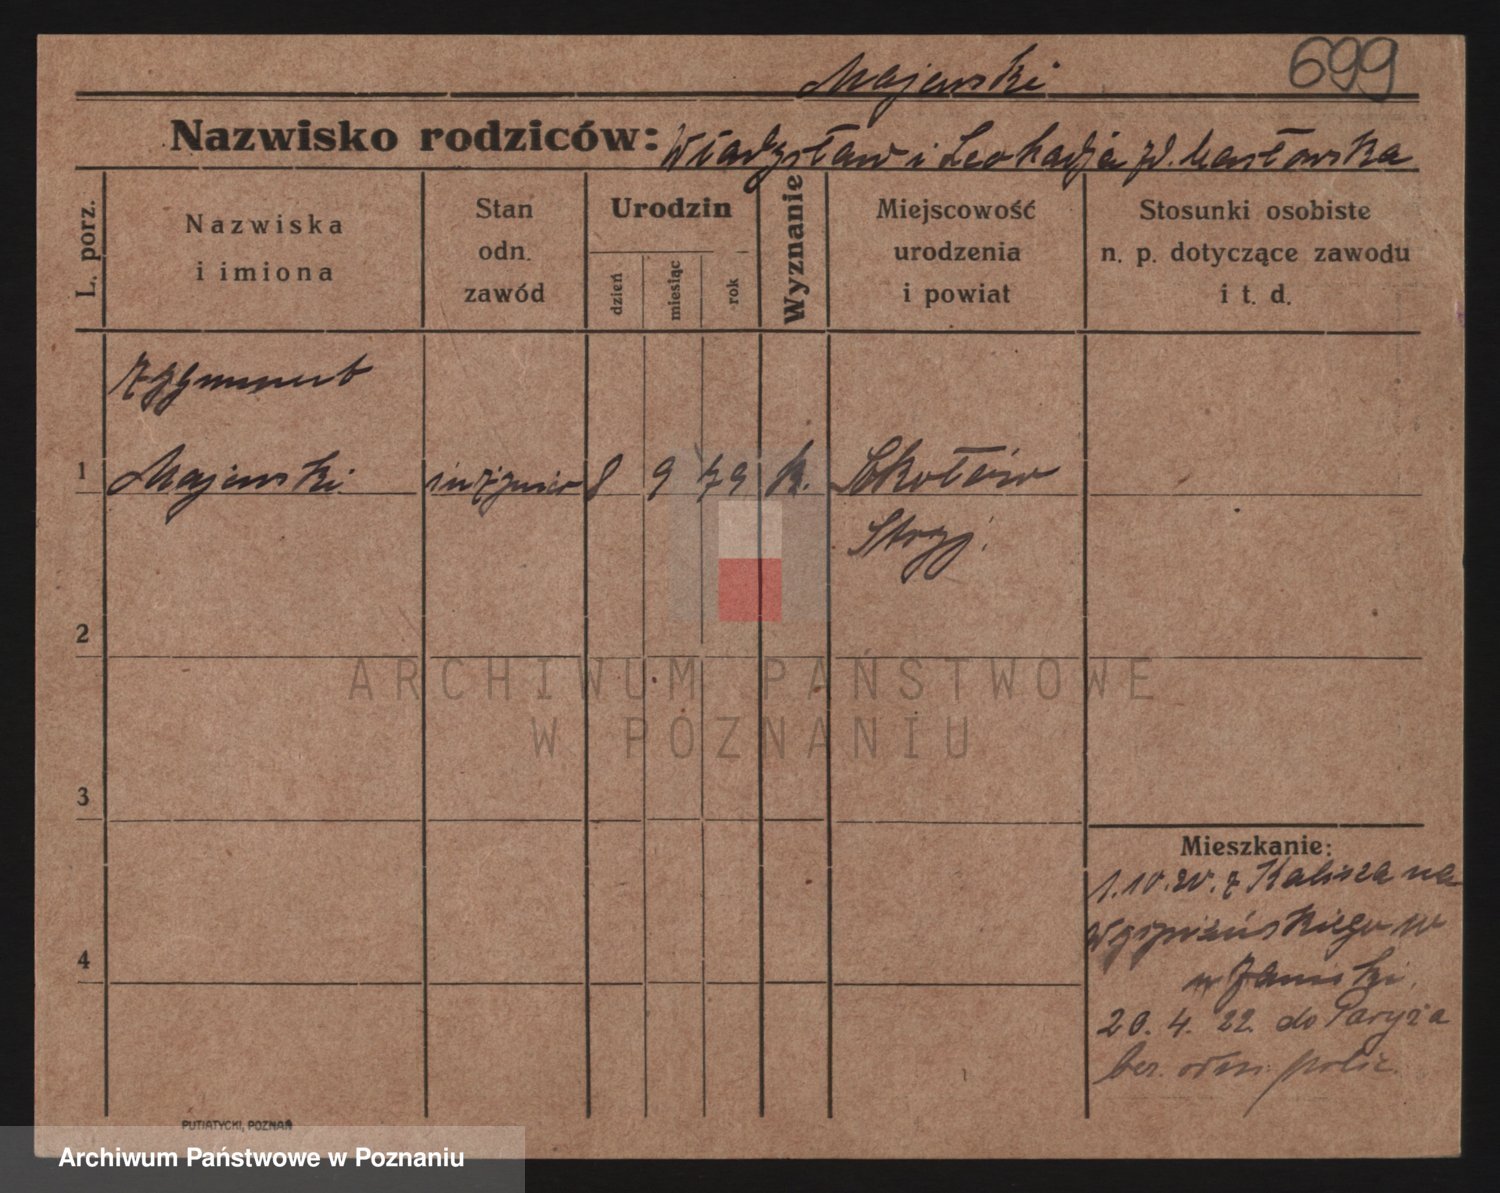 699
Majewski
Nazwisko rodziców: Władysław i Leokadja zd. Masłowska
L. porz.
Nazwiska
i imiona
Stan
odn.
zawód
Urodzin
dzień
miesiąc
rok
Wyznanie
Miejscowość
urodzenia
i powiat
Stosunki osobiste
n. p. dotyczące zawodu
i t. d.
Zygmunt
1 Majewski inżynier 8 9 79 k.
Stryj.
2
3
4
Mieszkanie:
1.10.20. z Kalisza na
Wyspiańskiego 10
20. 4. 22. do Paryża
bez. odm. polic.
PUTIATYCKI, POZNAŃ
ARCHIWUM PAŃSTWOWE
W POZNANIU
Archiwum Państwowe w Poznaniu